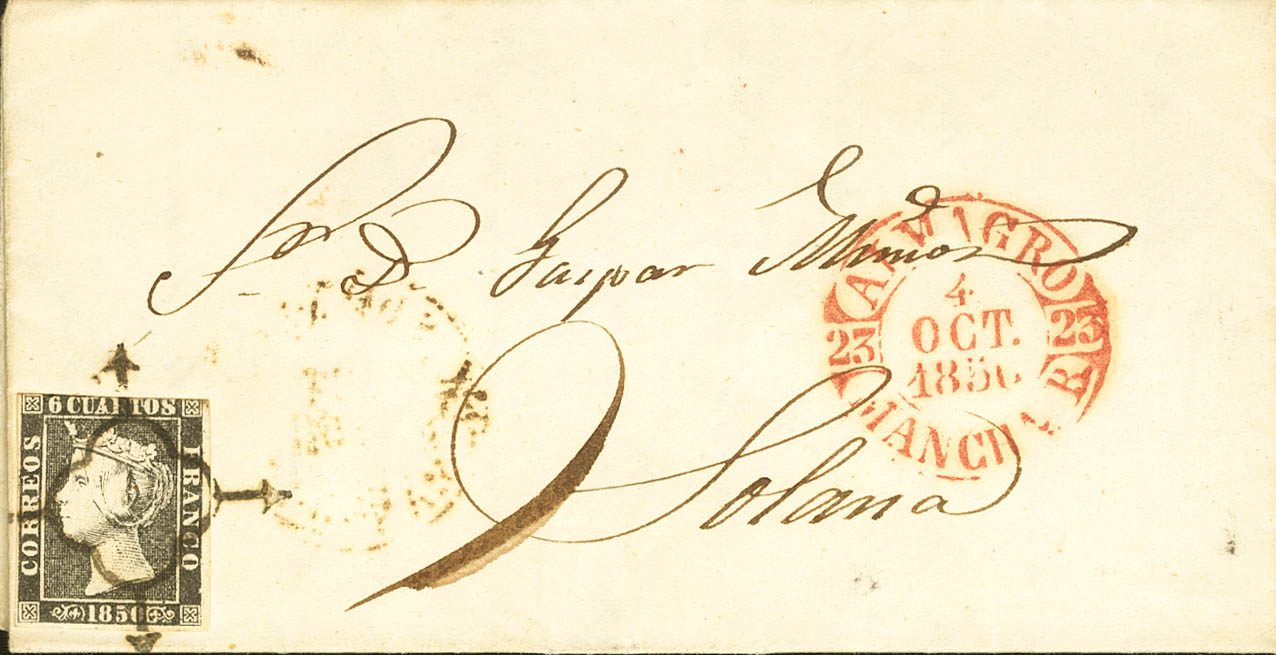 Sr. D. Gaspar Muñoz
Solana
ALMAGRO
4
OCT.
1850
23 23
MANCHA B
6 CUARTOS
CORREOS
FRANCO
1850